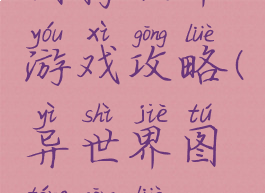 yóu xì gōng lüè
游戏攻略(
yì shì jiè tú
异世界图